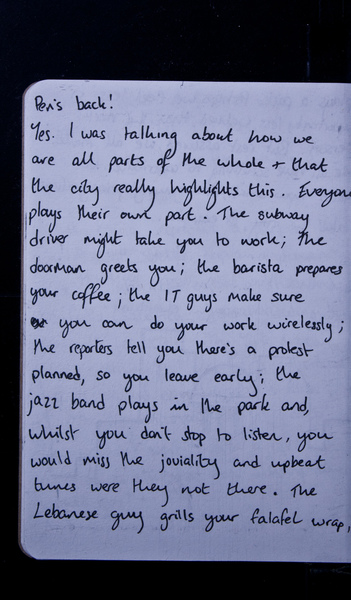 Pen's back!
Yes. I was talking about how we
are all parts of the whole + that
the city really highlights this. Everyone
plays their own part. The subway
driver might take you to work; the
doorman greets you; the barista prepares
your coffee; the IT guys make sure
you can do your work wirelessly;
the reporters tell you there's a protest
planned, so you leave early; the
jazz band plays in the park and,
whilst you don't stop to listen, you
would miss the joviality and upbeat
tunes were they not there. The
Lebanese guy grills your falafel wrap,